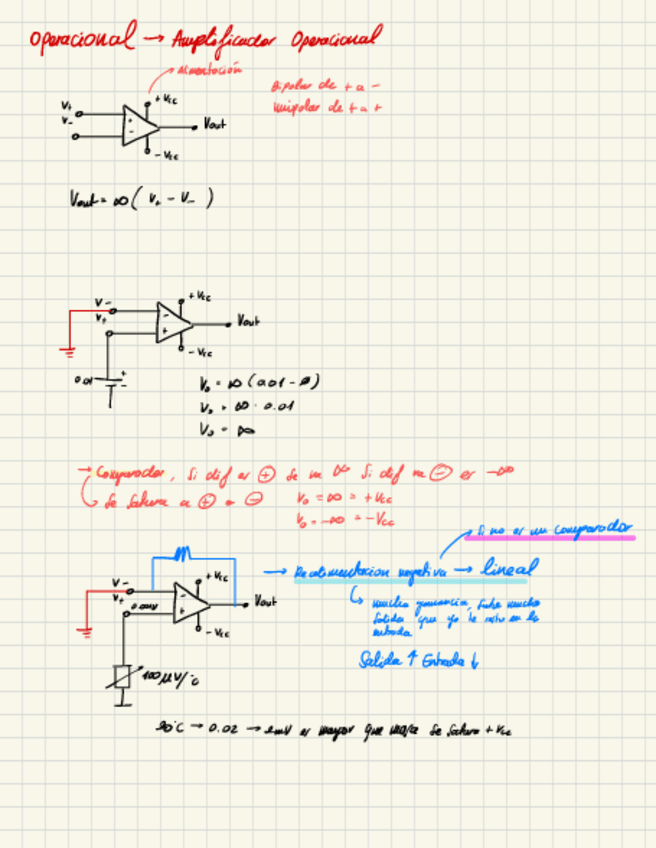 Operacional → Amplificador Operacional
Alimentación
Bipolar de + a -
Unipolar de + a +
V+
V-
+Vcc
+
-
Vout
-Vcc
Vout = ∞ ( V+ - V- )
V-
V+
+Vcc
-
+
Vout
-Vcc
0.01
+
-
Vo = ∞ (0.01 - 0)
Vo = ∞ · 0.01
Vo = ∞
→ Comparador, Si dif es ⊕ Se va ∞ Si dif va ⊖ es -∞
Se Satura a ⊕ o ⊖
Vo = ∞ = +Vcc
Vo = -∞ = -Vcc
Si no es un comparador
→ Realimentacion negativa → lineal
V-
V+
+Vcc
-
+
Vout
-Vcc
mucha ganancia, sube mucho
Salida que yo le resto en la
entrada
Salida ↑ Entrada ↓
100μV/°c
20°C → 0.02 → 2mV es mayor que Se Satura +Vcc